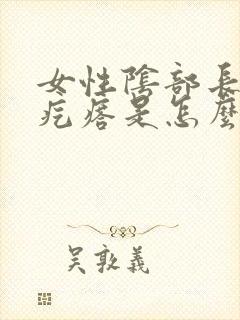 女性陰部長
疙瘩是怎麼
吴敦義